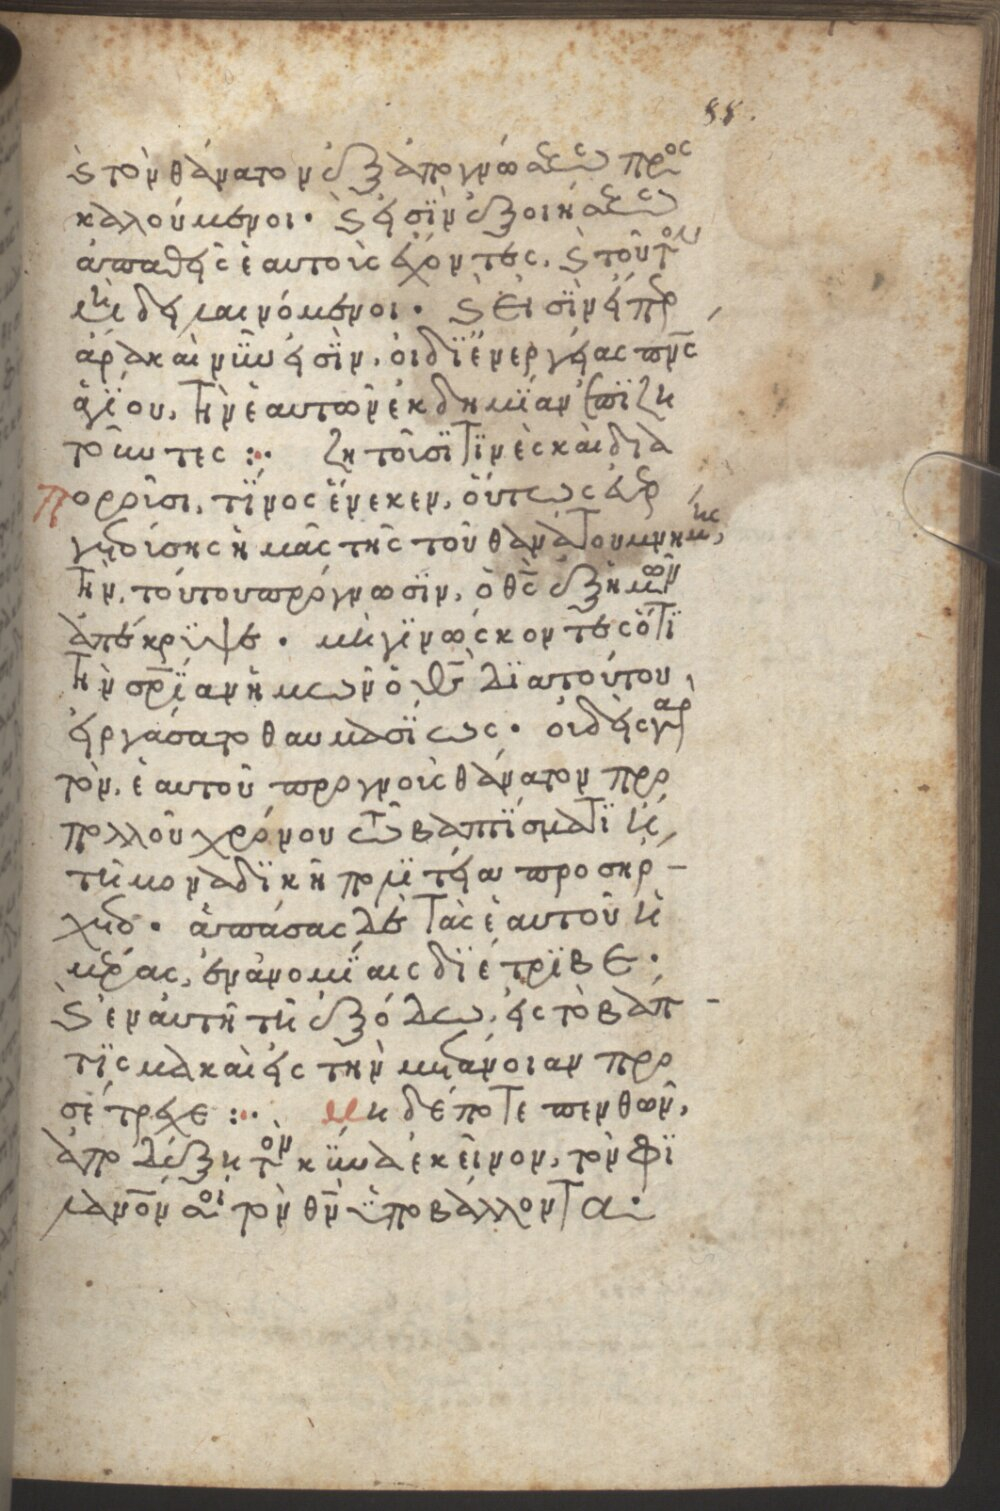 88.
καὶ τὸν θάνατον ἐξ ἀπογνώσεως προσ
καλούμενοι. καὶ εἰσὶν ἐξ οἰήσεως
ἀπαθεῖς ἑαυτοῖς ἔχοντες. καὶ τοῦτον
μὴ δειλαινόμενοι. καὶ εἰσὶν εἴπερ
ἄρα καὶ νῦν εἰσὶν, οἱ δι ἐνεργείας πνς
ἁγίου, τὴν ἑαυτῶν ἐκδημίαν ἐπιζη
τοῦντες :· ζητοῦσί τινὲς καὶ δια
ποροῦσι, τίνος ἕνεκεν, οὕτως εὐερ
γετούσης ἡμᾶς τῆς τοῦ θανάτου μνήμης,
τὴν τούτου πρόγνωσιν, ὁ θς ἐξ ἡμῶν
ἀπέκρυψε. μὴ γινώσκοντες ὅτι
τὴν σρίαν ἡμῶν ὁ θς διὰ τούτου,
εἰργάσατο θαυμασίως. οὐδεὶς γὰρ
τὸν ἑαυτοῦ προγνοὺς θάνατον πρὸ
πολλοῦ χρόνου τῶ βαπτίσματι ἢ
τῆ μοναδικῆ πολιτεία προσήρ-
χετο. ἁπάσας δὲ τὰς ἑαυτοῦ ἡ
μέρας, ἐν ἀνομίαις διέτριβε.
καὶ ἐν αὐτῆ τῆ ἐξόδω, εἰς τὸ βάπ-
τισμα καὶ εἰς τὴν μετάνοιαν προ
σέτρεχε :· Μηδέποτε πενθῶν,
ἀποδέξη τὸν κύνα ἐκεῖνον, τὸν φι
λανον σοι τὸν θν ὑποβάλλοντα.